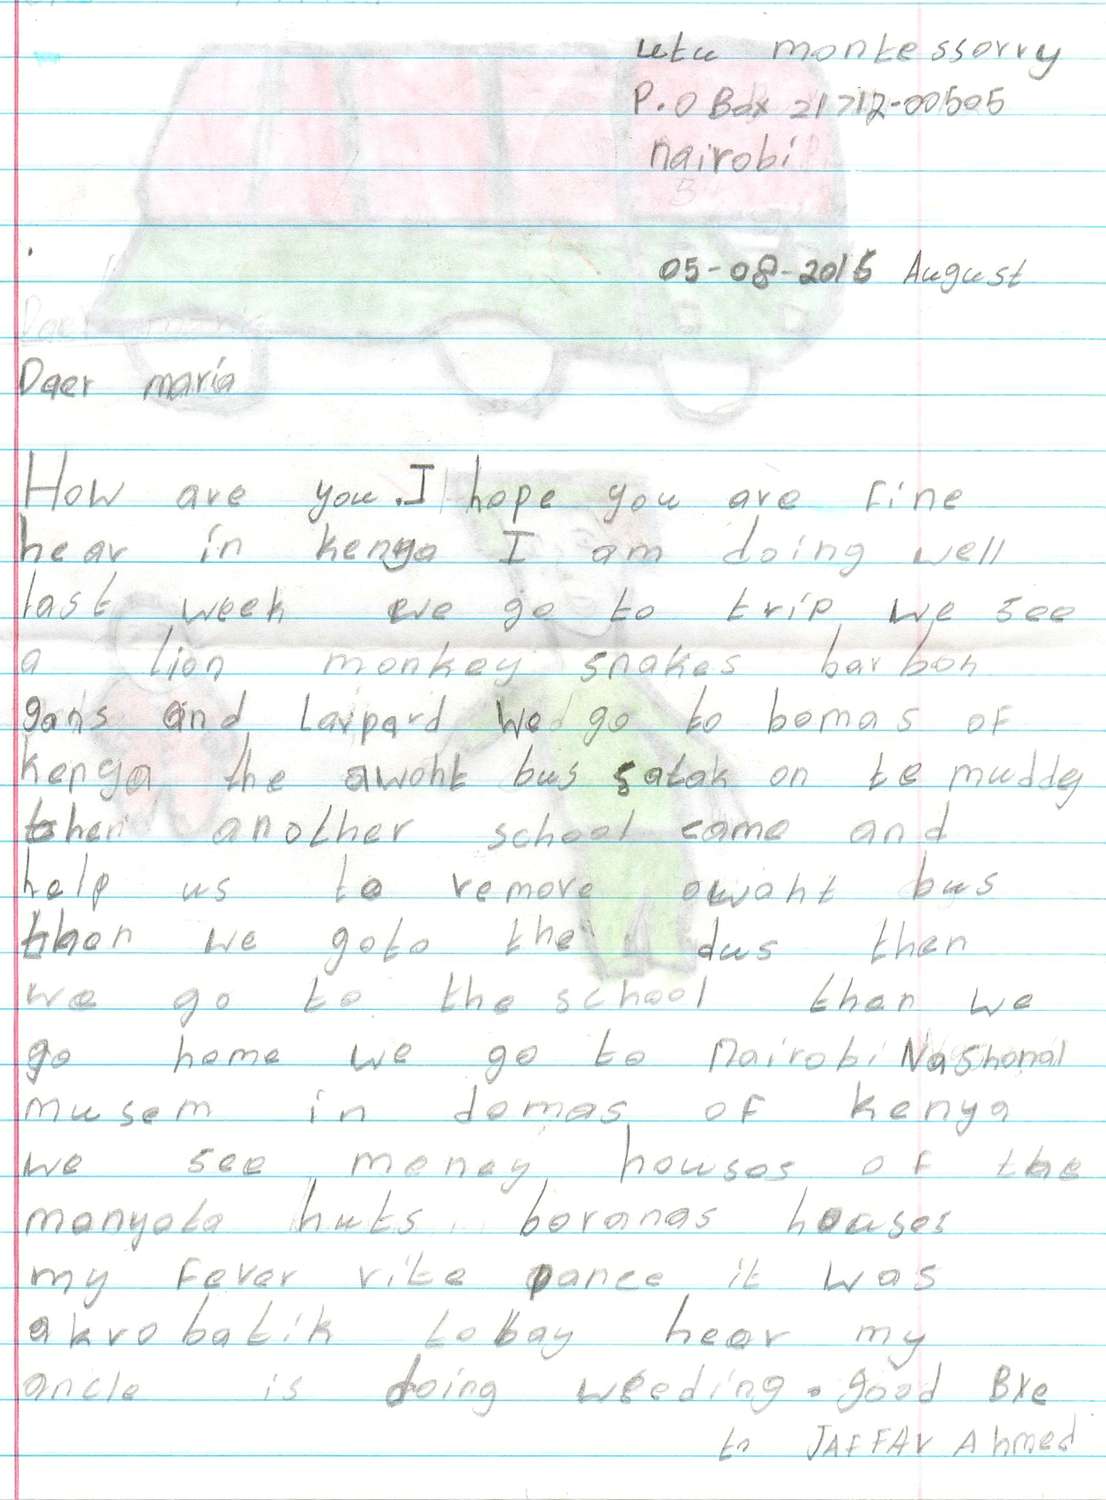 utu montessorry
P.O Box 21712-00505
nairobi
05-08-2015 August
Daer maria
How are you. I hope you are fine
hear in kenya I am doing well
last week we go to trip we see
a lion monkey snakes barbon
gans and Larpard We go to bomas of
kenya the awoht bus satak on te muddy
then another school came and
help us to remore owoht bus
then we goto the dus then
we go to the school then we
go home we go to Nairobi Nashonal
musem in domas of kenya
we see meney houses of the
manyata huts boranas houses
my fever rite dance it was
akrobatik tobay hear my
ancle is doing weeding. good Bye
to JAFFAr Ahmed